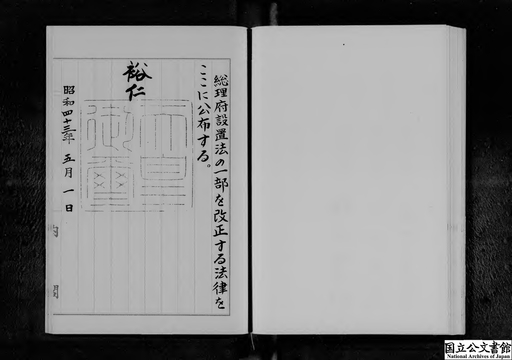 総理府設置法の一部を改正する法律を
ここに公布する。
裕仁
天皇
御璽
昭和四十三年五月一日
国立公文書館
National Archives of Japan